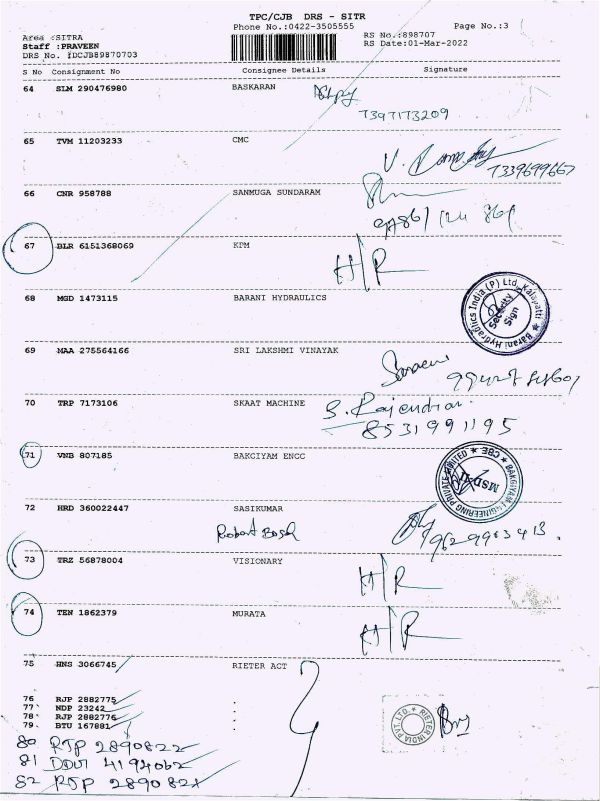 TPC/CJB DRS - SITR
Phone No.:0422-3505555
Page No.:3
Area :SITRA
Staff :PRAVEEN
DRS No. :DCJB89870703
RS No.:898707
RS Date:01-Mar-2022
S No Consignment No Consignee Details Signature
64 SLM 290476980 BASKARAN
7397173209
65 TVM 11203233 CMC
7339699667
66 CNR 958788 SANMUGA SUNDARAM
67 BLR 6151368069 KPM H/R
68 MGD 1473115 BARANI HYDRAULICS
Barani Hydraulics India (P) Ltd, Kalapatti
Security Sign
69 MAA 275564166 SRI LAKSHMI VINAYAK
70 TRP 7173106 SKAAT MACHINE S. Rajendran
8531991195
71 VNB 807185 BAKGIYAM ENGG
BAKGIYAM ENGINEERING PRIVATE LIMITED ★ CBE ★
72 HRD 360022447 SASIKUMAR
Robert Bosch 9629963413
73 TRZ 56878004 VISIONARY H/R
74 TEN 1862379 MURATA H/R
75 HNS 3066745 RIETER ACT
76 RJP 2882775 :
77 NDP 23242 :
78 RJP 2882776 :
79 BTU 167881 :
RIETER INDIA PVT. LTD.
80 RJP 2890822
81 DDUI 4194062
82 RJP 2890821